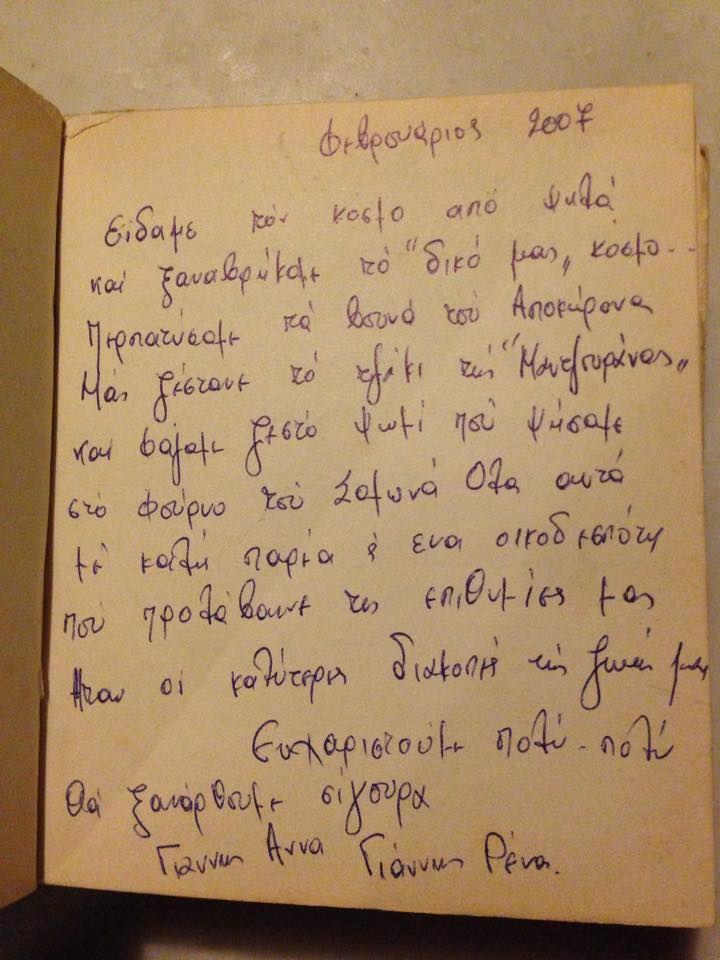 Φεβρουάριος 2007
Είδαμε τόν κόσμο από ψηλά
και ξαναβρήκαμε τό "δικό μας„ κόσμο--
Περπατήσαμε τά βουνά του Αποκόρωνα
Μάς ζέστανε τό τζάκι της "Μαντζουράνας„
και φάγαμε ζεστό ψωμί πού ψήσαμε
στό φούρνο του Σαμωνά Ολα αυτά
μέ καλή παρέα & ενα οικοδεσπότη
πού προλάβαινε τις επιθυμίες μας
Ηταν οι καλύτερες διακοπές τής ζωής μας
Ευχαριστούμε πολύ-πολύ
Θά ξανάρθουμε σίγουρα
Γιαννης Αννα Γιάννης Ρένα.